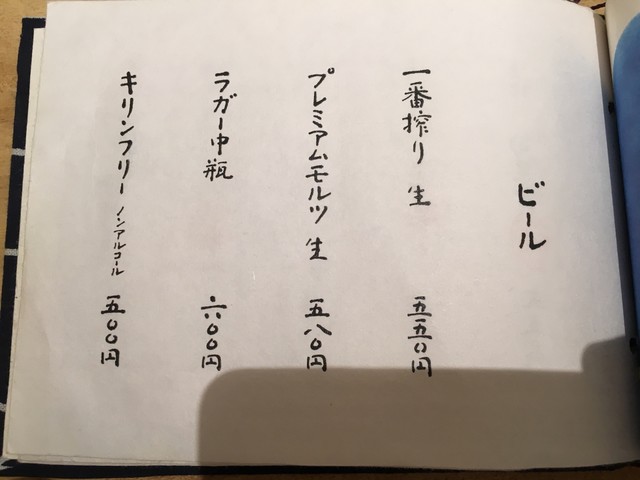 ビール
一番搾り 生 五五〇円
プレミアムモルツ 生 五八〇円
ラガー中瓶 六〇〇円
キリンフリー ノンアルコール 五〇〇円